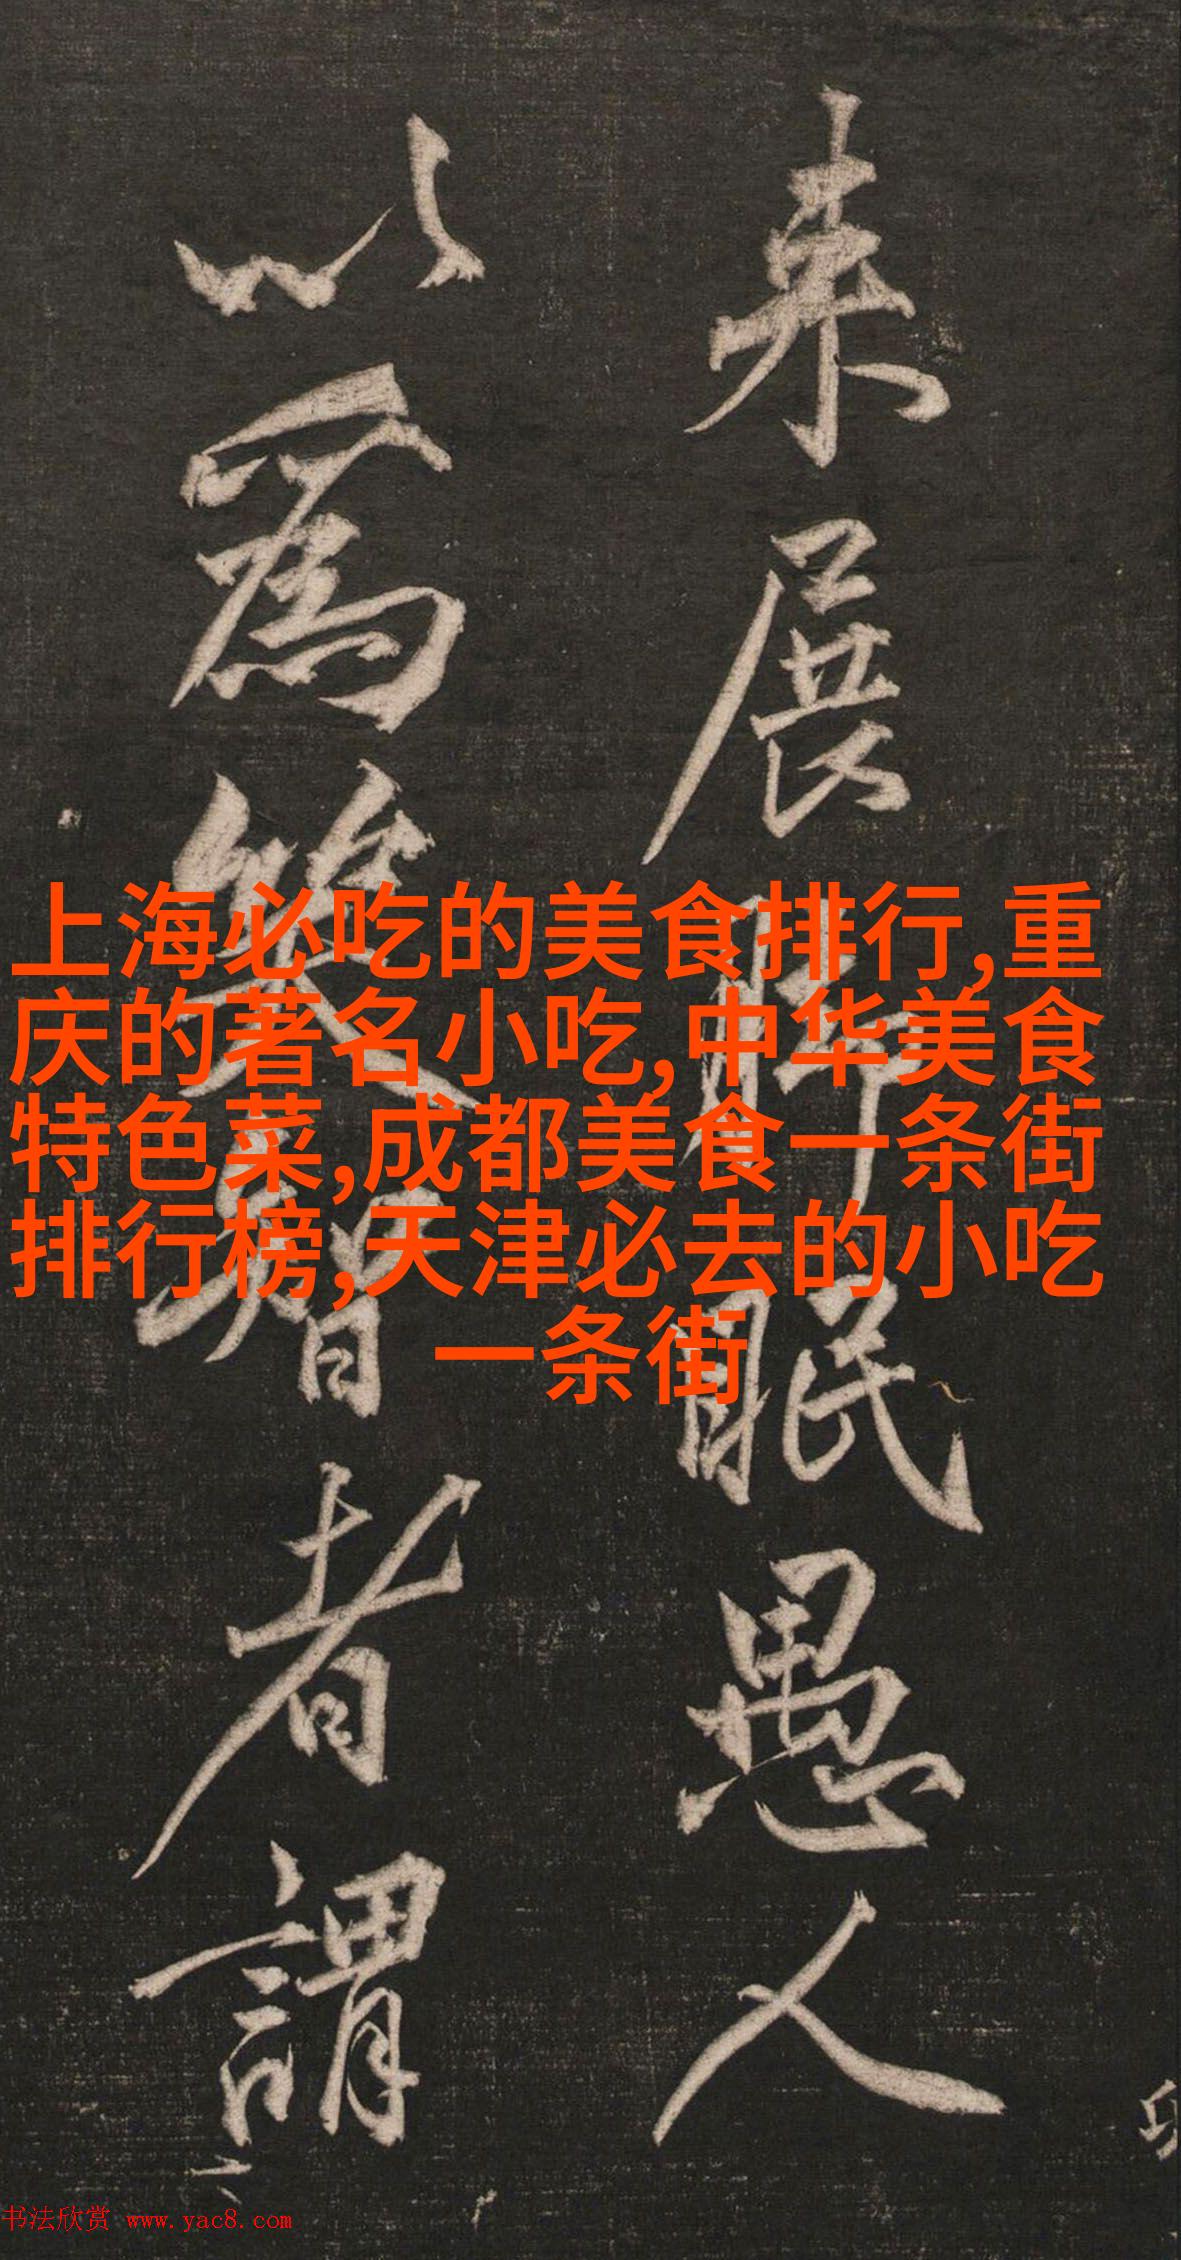 来展眒眠愚人
以為笑智者謂
上海必吃的美食排行,重
庆的著名小吃,中华美食
特色菜,成都美食一条街
排行榜,天津必去的小吃
一条街
书法欣赏 www.yac8.com